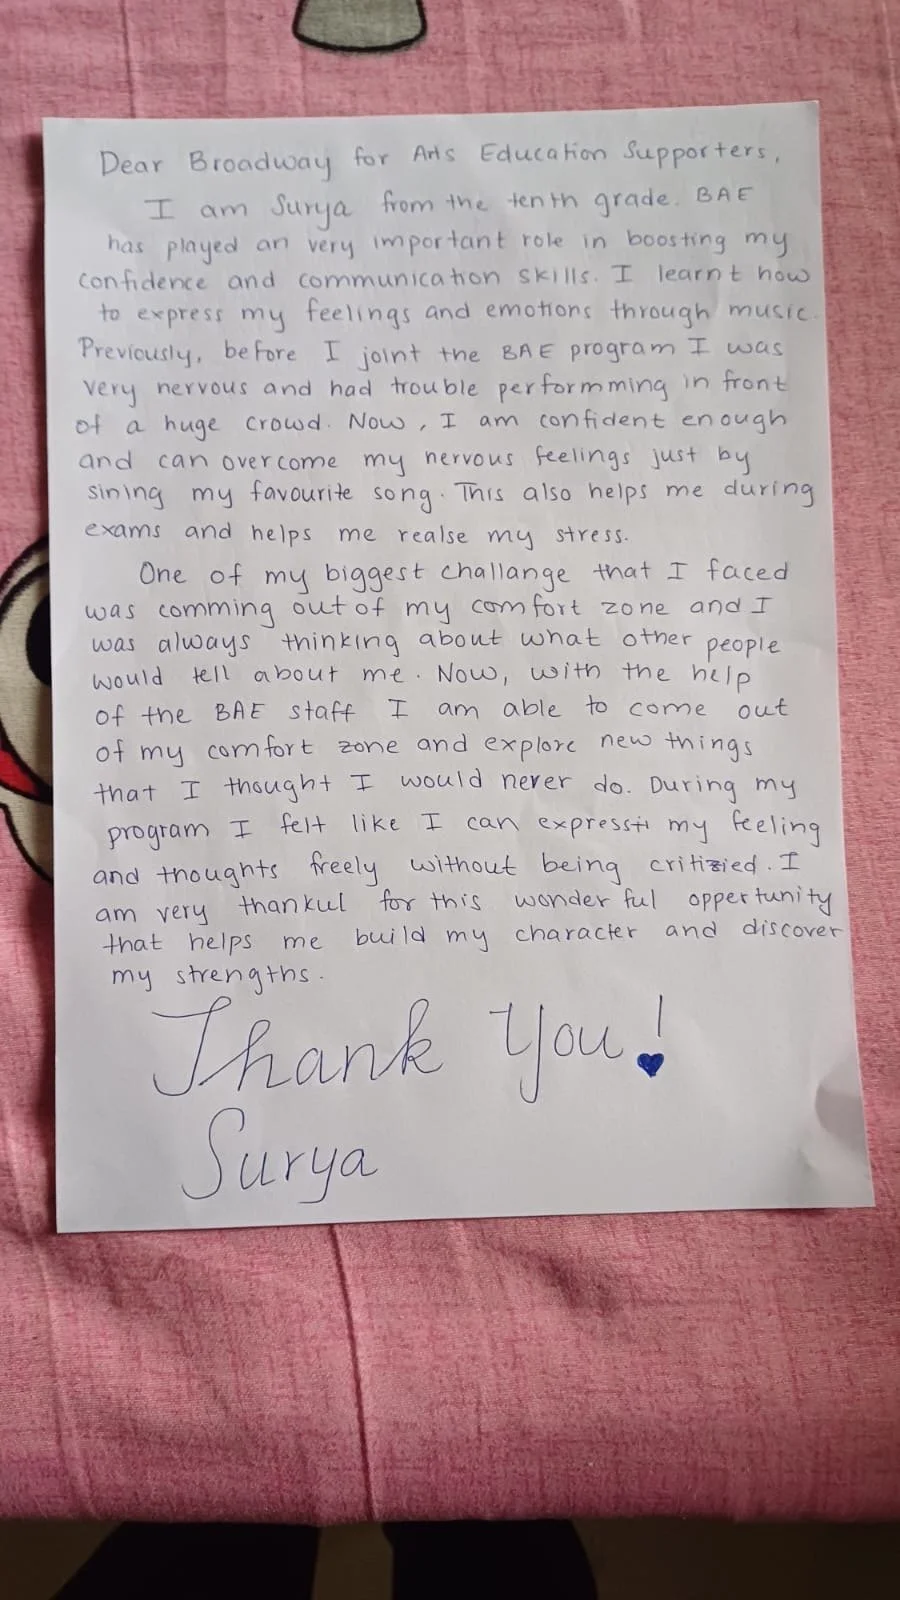 Dear Broadway for Arts Education Supporters,
I am Surya from the tenth grade. BAE
has played an very important role in boosting my
confidence and communication skills. I learnt how
to express my feelings and emotions through music.
Previously, before I joint the BAE program I was
very nervous and had trouble performming in front
of a huge crowd. Now, I am confident enough
and can overcome my nervous feelings just by
sining my favourite song. This also helps me during
exams and helps me realse my stress.
One of my biggest challange that I faced
was comming out of my comfort zone and I
was always thinking about what other people
would tell about me. Now, with the help
of the BAE staff I am able to come out
of my comfort zone and explore new things
that I thought I would never do. During my
program I felt like I can express my feeling
and thoughts freely without being critizied. I
am very thankul for this wonderful oppertunity
that helps me build my character and discover
my strengths.
Thank You!
Surya